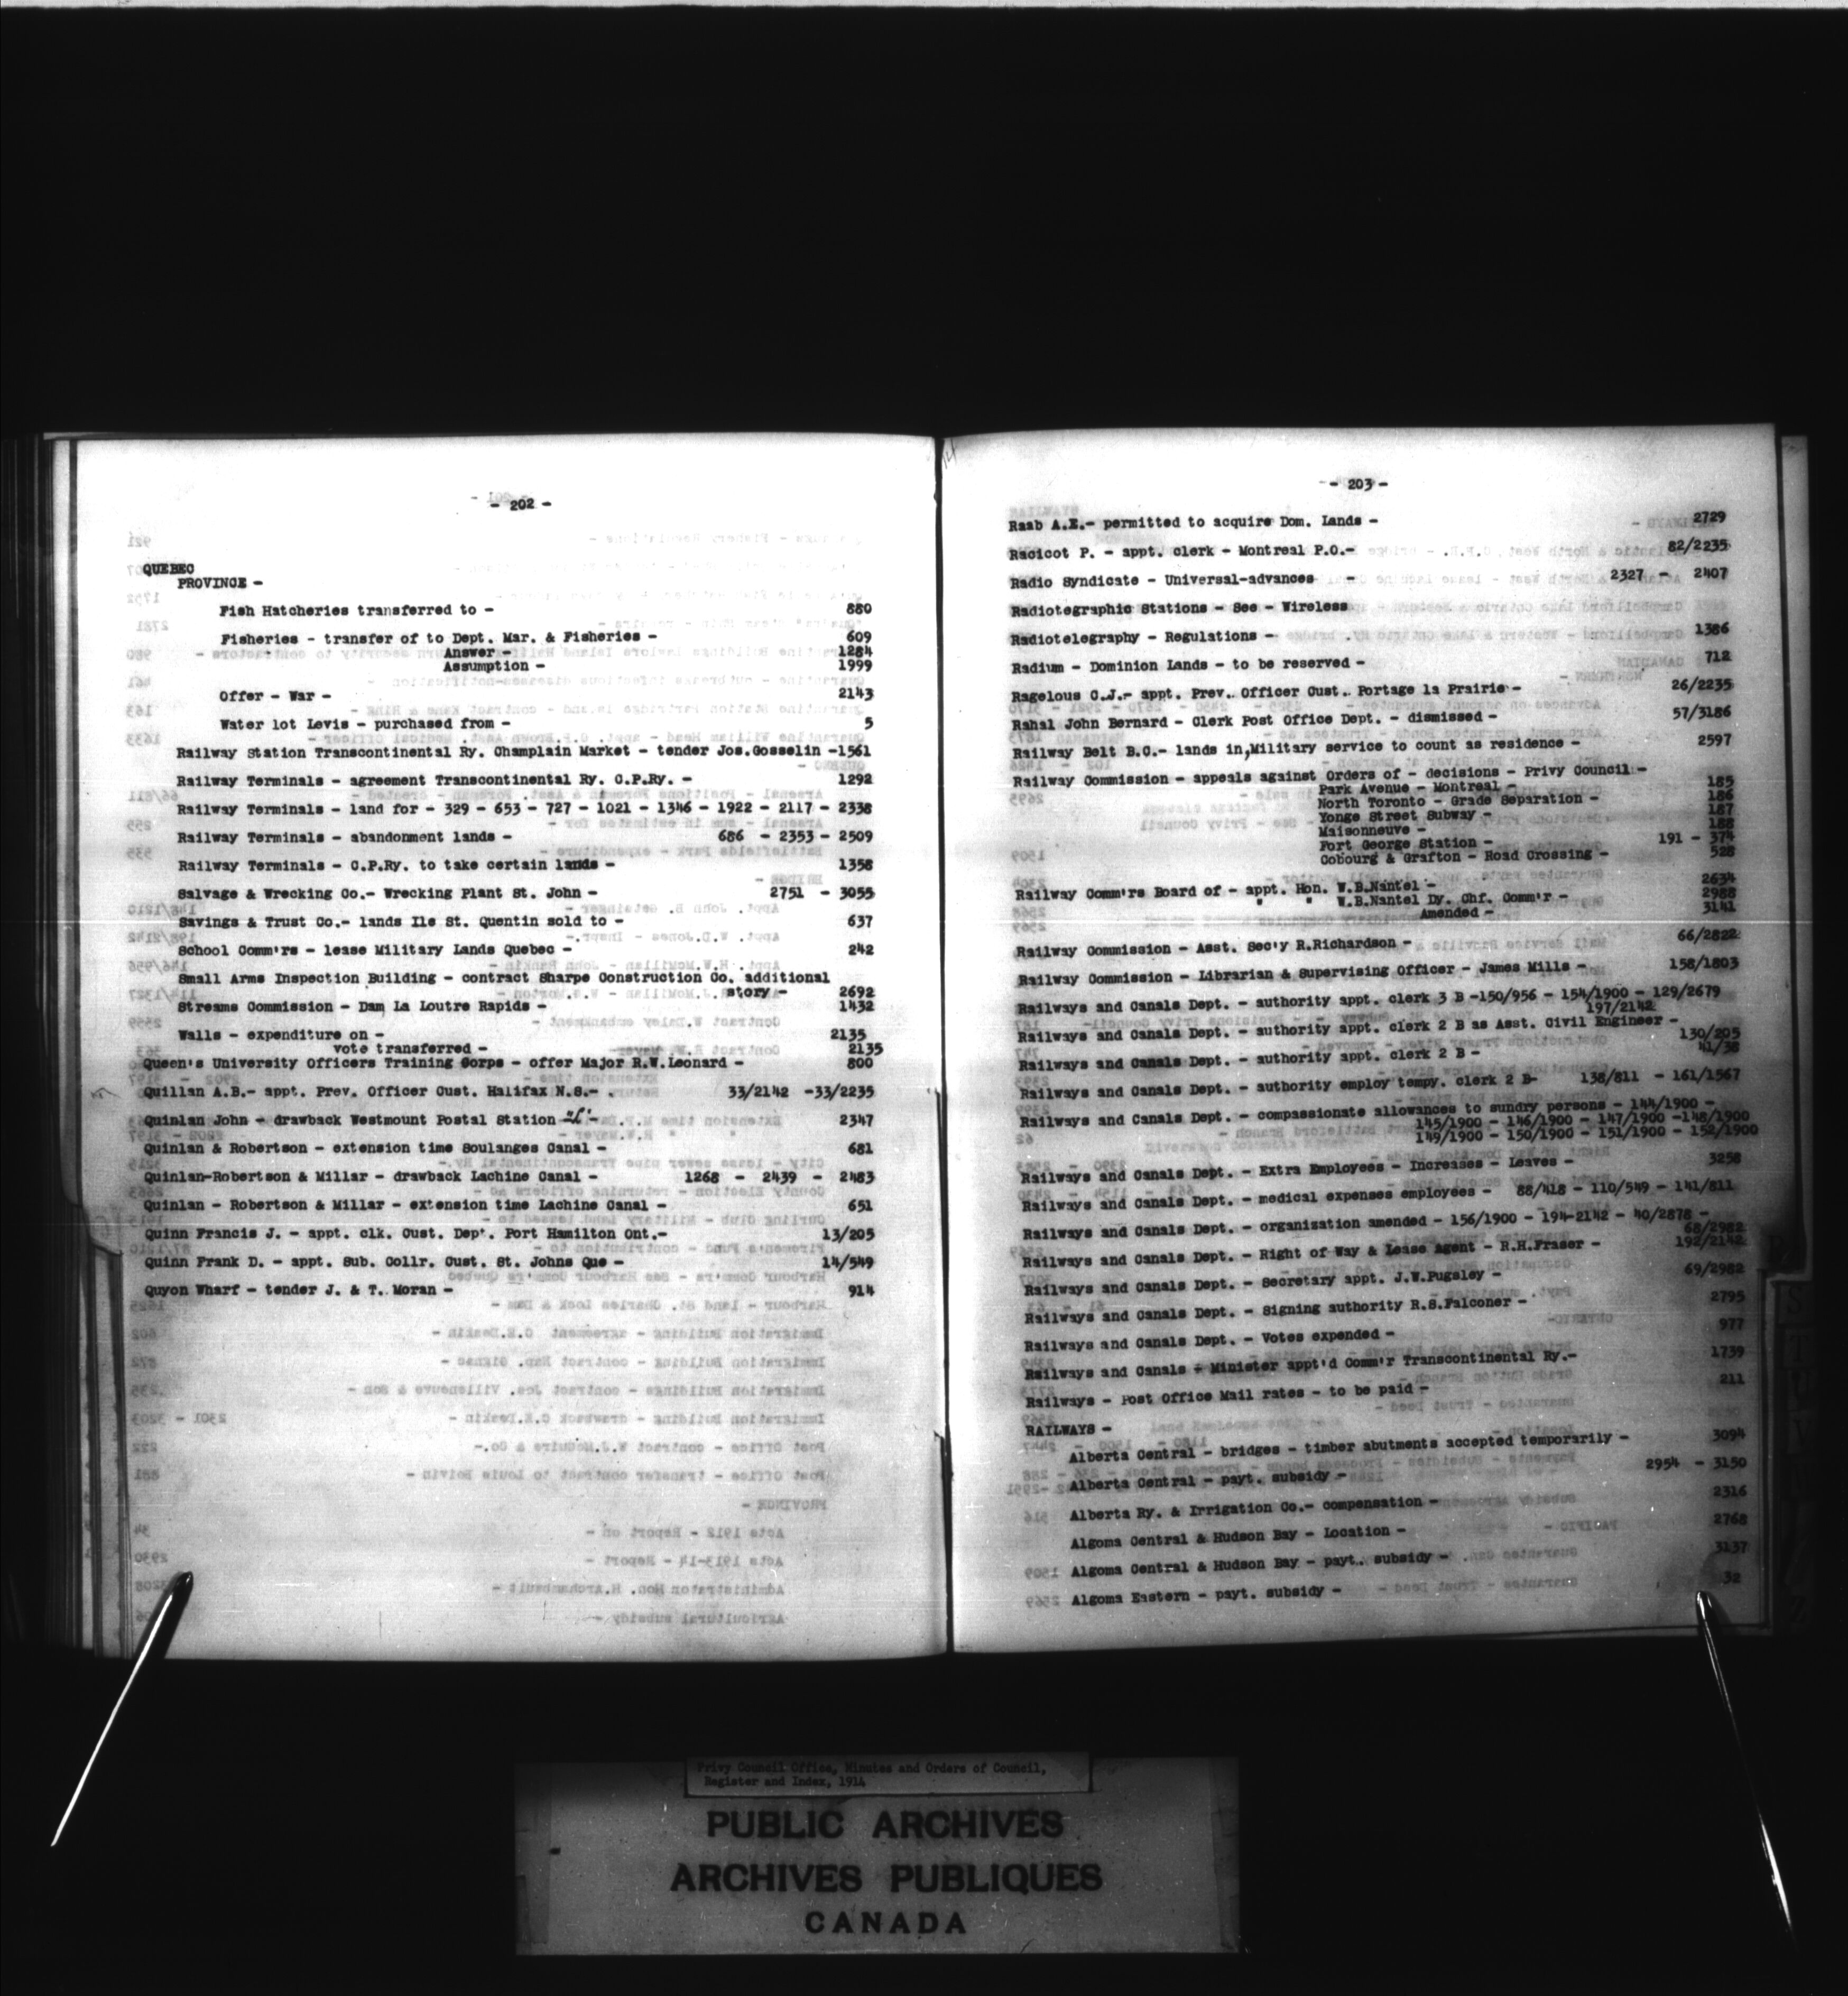 - 202 -
QUEBEC
PROVINCE -
Fish Hatcheries transferred to - 880
Fisheries - transfer of to Dept. Mar. & Fisheries - 609
Answer - 1284
Assumption - 1999
Offer - War - 2143
Water lot Levis - purchased from - 5
Railway Station Transcontinental Ry. Champlain Market - tender Jos.Gosselin -1561
Railway Terminals - agreement Transcontinental Ry. C.P.Ry. - 1292
Railway Terminals - land for - 329 - 653 - 727 - 1021 - 1346 - 1922 - 2117 - 2338
Railway Terminals - abandonment lands - 686 - 2353 - 2509
Railway Terminals - C.P.Ry. to take certain lands - 1358
Salvage & Wrecking Co.- Wrecking Plant St. John - 2751 - 3055
Savings & Trust Co.- lands Ile St. Quentin sold to - 637
School Comm'rs - lease Military Lands Quebec - 242
Small Arms Inspection Building - contract Sharpe Construction Co. additional
story - 2692
Streams Commission - Dam La Loutre Rapids - 1432
Walls - expenditure on - 2135
vote transferred - 2135
Queen's University Officers Training Corps - offer Major R.W.Leonard - 800
Quillan A.B.- appt. Prev. Officer Cust. Halifax N.S.- . 33/2142 -33/2235
Quinlan John - drawback Westmount Postal Station - 2347
Quinlan & Robertson - extension time Soulanges Canal - 681
Quinlan-Robertson & Millar - drawback Lachine Canal - 1268 - 2439 - 2483
Quinlan - Robertson & Millar - extension time Lachine Canal - 651
Quinn Francis J. - appt. clk. Cust. Dep'. Port Hamilton Ont.- 13/205
Quinn Frank D. - appt. Sub. Collr. Cust. St. Johns Que - 14/549
Quyon Wharf - tender J. & T. Moran - 914
- 203 -
Raab A.E.- permitted to acquire Dom. Lands - 2729
Racicot P. - appt. clerk - Montreal P.O.- 82/2235
Radio Syndicate - Universal-advances - 2327 - 2407
Radiotegraphic Stations - See - Wireless
Radiotelegraphy - Regulations - 1386
Radium - Dominion Lands - to be reserved - 712
Ragelous C.J.- appt. Prev. Officer Cust. Portage la Prairie - 26/2235
Rahal John Bernard - Clerk Post Office Dept. - dismissed - 57/3186
Railway Belt B.C.- lands in,Military service to count as residence - 2597
Railway Commission - appeals against Orders of - decisions - Privy Council -
Park Avenue - Montreal - 185
North Toronto - Grade Separation - 186
Yonge Street Subway - 187
Maisonneuve - 188
Fort George Station - 191 - 374
Cobourg & Grafton - Road Crossing - 528
Railway Comm'rs Board of - appt. Hon. W.B.Nantel - 2634
" " W.B.Nantel Dy. Chf. Comm'r - 2988
Amended - 3141
Railway Commission - Asst. Sec'y R.Richardson - 66/2822
Railway Commission - Librarian & Supervising Officer - James Mills - 158/1803
Railways and Canals Dept. - authority appt. clerk 3 B -150/956 - 154/1900 - 129/2679
197/2142
Railways and Canals Dept. - authority appt. clerk 2 B as Asst. Civil Engineer -
130/205
Railways and Canals Dept. - authority appt. clerk 2 B - 41/38
Railways and Canals Dept. - authority employ tempy. clerk 2 B- 138/811 - 161/1567
Railways and Canals Dept. - compassionate allowances to sundry persons - 144/1900 -
145/1900 - 146/1900 - 147/1900 -148/1900
149/1900 - 150/1900 - 151/1900 - 152/1900
Railways and Canals Dept. - Extra Employees - Increases - Leaves - 3258
Railways and Canals Dept. - medical expenses employees - 88/418 - 110/549 - 141/811
Railways and Canals Dept. - organization amended - 156/1900 - 194-2142 - 40/2878 -
68/2982
Railways and Canals Dept. - Right of Way & Lease Agent - R.H.Fraser - 192/2142
Railways and Canals Dept. - Secretary appt. J.W.Pugsley - 69/2982
Railways and Canals Dept. - Signing authority R.S.Falconer - 2795
Railways and Canals Dept. - Votes expended - 977
Railways and Canals - Minister appt'd Comm'r Transcontinental Ry.- 1739
Railways - Post Office Mail rates - to be paid - 211
RAILWAYS -
Alberta Central - bridges - timber abutments accepted temporarily - 3094
Alberta Central - payt. subsidy - 2954 - 3150
Alberta Ry. & Irrigation Co.- compensation - 2316
Algoma Central & Hudson Bay - Location - 2768
Algoma Central & Hudson Bay - payt. subsidy - 3137
Algoma Eastern - payt. subsidy - 32
Privy Council Office, Minutes and Orders of Council,
Register and Index, 1914
PUBLIC ARCHIVES
ARCHIVES PUBLIQUES
CANADA